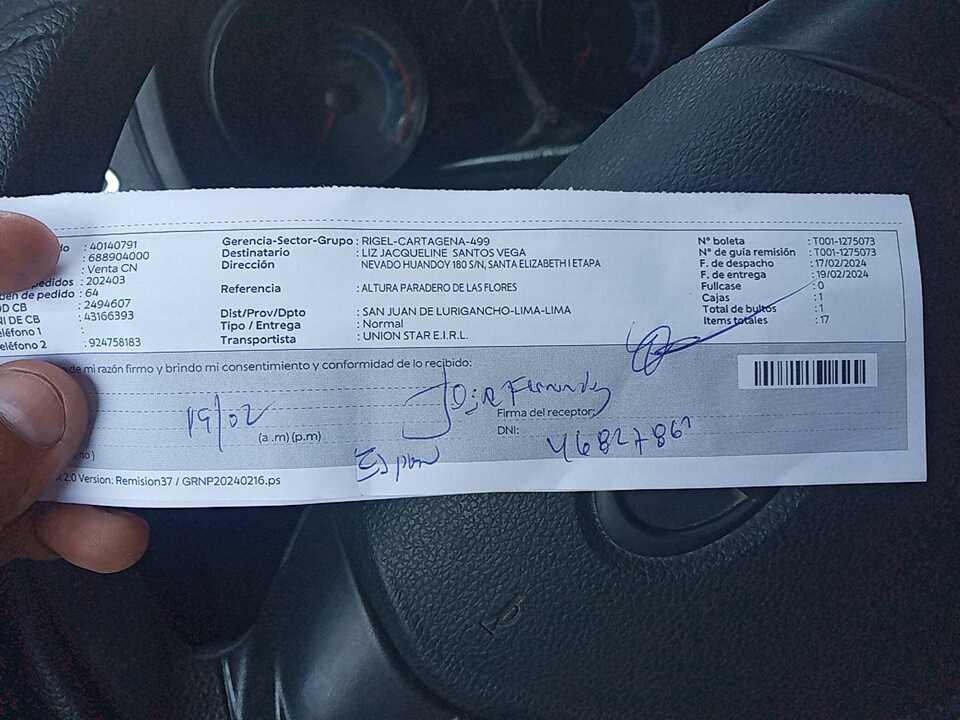 do : 40140791
: 688904000
: Venta CN
pedidos : 202403
den de pedido : 64
OD CB : 2494607
NI DE CB : 43166393
eléfono 1 :
eléfono 2 : 924758183
Gerencia-Sector-Grupo : RIGEL-CARTAGENA-499
Destinatario : LIZ JACQUELINE SANTOS VEGA
Dirección : NEVADO HUANDOY 180 S/N, SANTA ELIZABETH I ETAPA
Referencia : ALTURA PARADERO DE LAS FLORES
DIst/Prov/Dpto : SAN JUAN DE LURIGANCHO-LIMA-LIMA
Tipo / Entrega : Normal
Transportista : UNION STAR E.I.R.L.
N° boleta : T001-1275073
N° de guía remisión : T001-1275073
F. de despacho : 17/02/2024
F. de entrega : 19/02/2024
Fullcase : 0
Cajas : 1
Total de bultos : 1
Items totales : 17
de mi razón firmo y brindo mi consentimiento y conformidad de lo recibido:
19/02
(a .m) (p.m)
Firma del receptor:
DNI:
no )
2.0 Version: Remision37 / GRNP20240216.ps